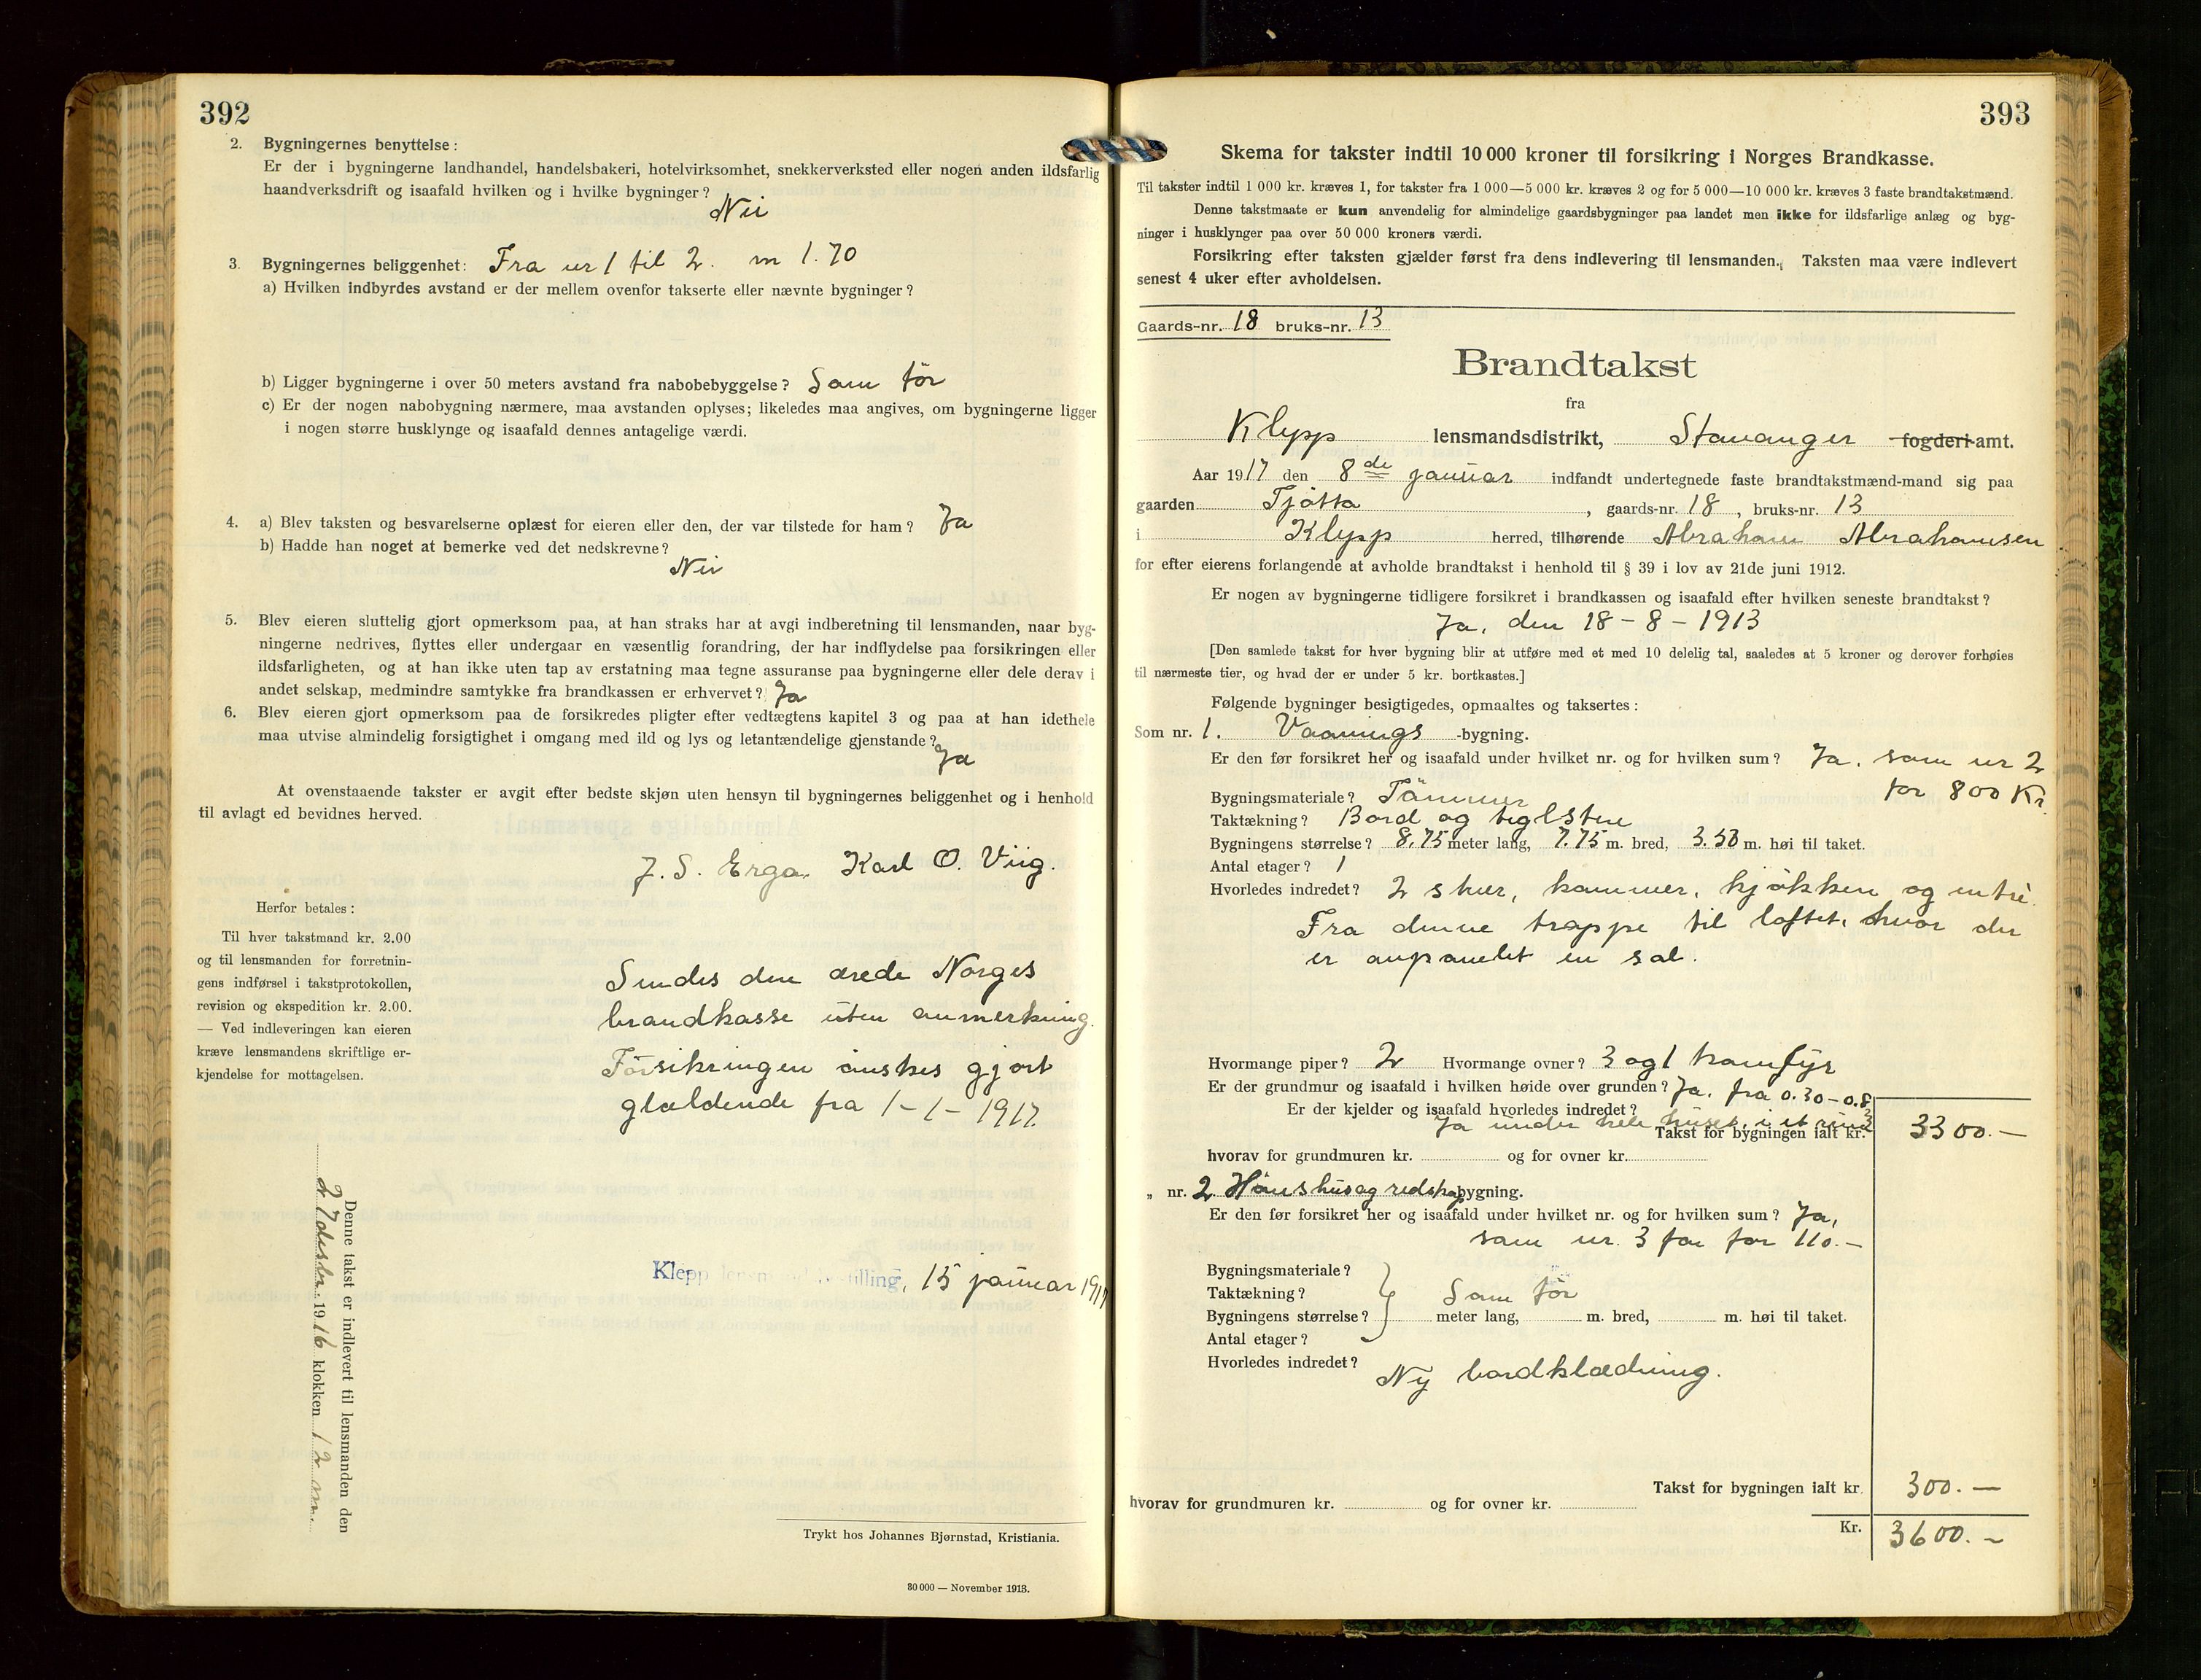 392
2. Bygningernes benyttelse:
Er der i bygningerne landhandel, handelsbakeri, hotelvirksomhet, snekkerverksted eller nogen anden ildsfarlig
haandverksdrift og isaafald hvilken og i hvilke bygninger?
Nei
3. Bygningernes beliggenhet: Fra nr 1 til 2. m 1.70
a) Hvilken indbyrdes avstand er der mellem ovenfor takserte eller nævnte bygninger?
b) Ligger bygningerne i over 50 meters avstand fra nabobebyggelse? Som før
c) Er der nogen nabobygning nærmere, maa avstanden oplyses; likeledes maa angives, om bygningerne ligger
i nogen større husklynge og isaafald dennes antagelige værdi.
4. a) Blev taksten og besvarelserne oplæst for eieren eller den, der var tilstede for ham? Ja
b) Hadde han noget at bemerke ved det nedskrevne?
Nei
5. Blev eieren sluttelig gjort opmerksom paa, at han straks har at avgi indberetning til lensmanden, naar byg-
ningerne nedrives, flyttes eller undergaar en væsentlig forandring, der har indflydelse paa forsikringen eller
ildsfarligheten, og at han ikke uten tap av erstatning maa tegne assuranse paa bygningerne eller dele derav i
andet selskap, medmindre samtykke fra brandkassen er erhvervet? Ja
6. Blev eieren gjort opmerksom paa de forsikredes pligter efter vedtægtens kapitel 3 og paa at han idethele
maa utvise almindelig forsigtighet i omgang med ild og lys og letantændelige gjenstande?
Ja
At ovenstaaende takster er avgit efter bedste skjøn uten hensyn til bygningernes beliggenhet og i henhold
til avlagt ed bevidnes herved.
J. S. Erga. Karl O. Viig.
Herfor betales:
Til hver takstmand kr. 2.00
og til lensmanden for forretnin-
gens indførsel i takstprotokollen,
revision og ekspedition kr. 2.00.
— Ved indleveringen kan eieren
kræve lensmandens skriftlige er-
kjendelse for mottagelsen.
Sendes den ærede Norges
brandkasse uten anmerkning.
Forsikringen ønskes gjort
glældende fra 1-1-1917.
Denne takst er indlevert til lensmanden den
1916 klokken 12 m.
Klepp lensmandsbestilling, 15 januar 1917
Trykt hos Johannes Bjørnstad, Kristiania.
30 000 — November 1913.
393
Skema for takster indtil 10 000 kroner til forsikring i Norges Brandkasse.
Til takster indtil 1 000 kr. kræves 1, for takster fra 1 000—5 000 kr. kræves 2 og for 5 000—10 000 kr. kræves 3 faste brandtakstmænd.
Denne takstmaate er kun anvendelig for almindelige gaardsbygninger paa landet men ikke for ildsfarlige anlæg og byg-
ninger i husklynger paa over 50 000 kroners værdi.
Forsikring efter taksten gjælder først fra dens indlevering til lensmanden. Taksten maa være indlevert
senest 4 uker efter avholdelsen.
Gaards-nr. 18 bruks-nr. 13
Brandtakst
fra
Klepp lensmandsdistrikt, Stavanger fogderi amt.
Aar 1917 den 8de januar indfandt undertegnede faste brandtakstmænd-mand sig paa
gaarden Tjøtta, gaards-nr. 18, bruks-nr. 13
i Klepp herred, tilhørende Abraham Abrahamsen
for efter eierens forlangende at avholde brandtakst i henhold til § 39 i lov av 21de juni 1912.
Er nogen av bygningerne tidligere forsikret i brandkassen og isaafald efter hvilken seneste brandtakst?
Ja, den 18-8-1913
[Den samlede takst for hver bygning blir at utføre med et med 10 delelig tal, saaledes at 5 kroner og derover forhøies
til nærmeste tier, og hvad der er under 5 kr. bortkastes.]
Følgende bygninger besigtigedes, opmaaltes og taksertes:
Som nr. 1. Vaanings -bygning.
Er den før forsikret her og isaafald under hvilket nr. og for hvilken sum? Ja, som nr 2
for 800 Kr.
Bygningsmateriale? Tømmer
Taktækning? Bord og teglstene
Bygningens størrelse? 8.75 meter lang, 7.75 m. bred, 3.50 m. høi til taket.
Antal etager? 1
Hvorledes indredet? 2 stuer, kammer, kjøkken og entré.
Fra denne trappe til loftet, hvor der
er avpanelet en sal.
Hvormange piper? 2 Hvormange ovner? 3 og 1 komfyr
Er der grundmur og isaafald i hvilken høide over grunden? Ja, fra 0.30-0.8
Er der kjelder og isaafald hvorledes indredet?
Ja under hele huset, i et rum
Takst for bygningen ialt kr. 3300.—
hvorav for grundmuren kr. og for ovner kr.
„ nr. 2 Hønshus og redskap bygning.
Er den før forsikret her og isaafald under hvilket nr. og for hvilken sum? Ja,
som nr. 3 for for 110.—
Bygningsmateriale?
Taktækning? Som før
Bygningens størrelse? meter lang, m. bred, m. høi til taket.
Antal etager?
Hvorledes indredet? Ny bordklædning.
Takst for bygningen ialt kr. 300.—
hvorav for grundmuren kr. og for ovner kr.
Kr. 3600.—